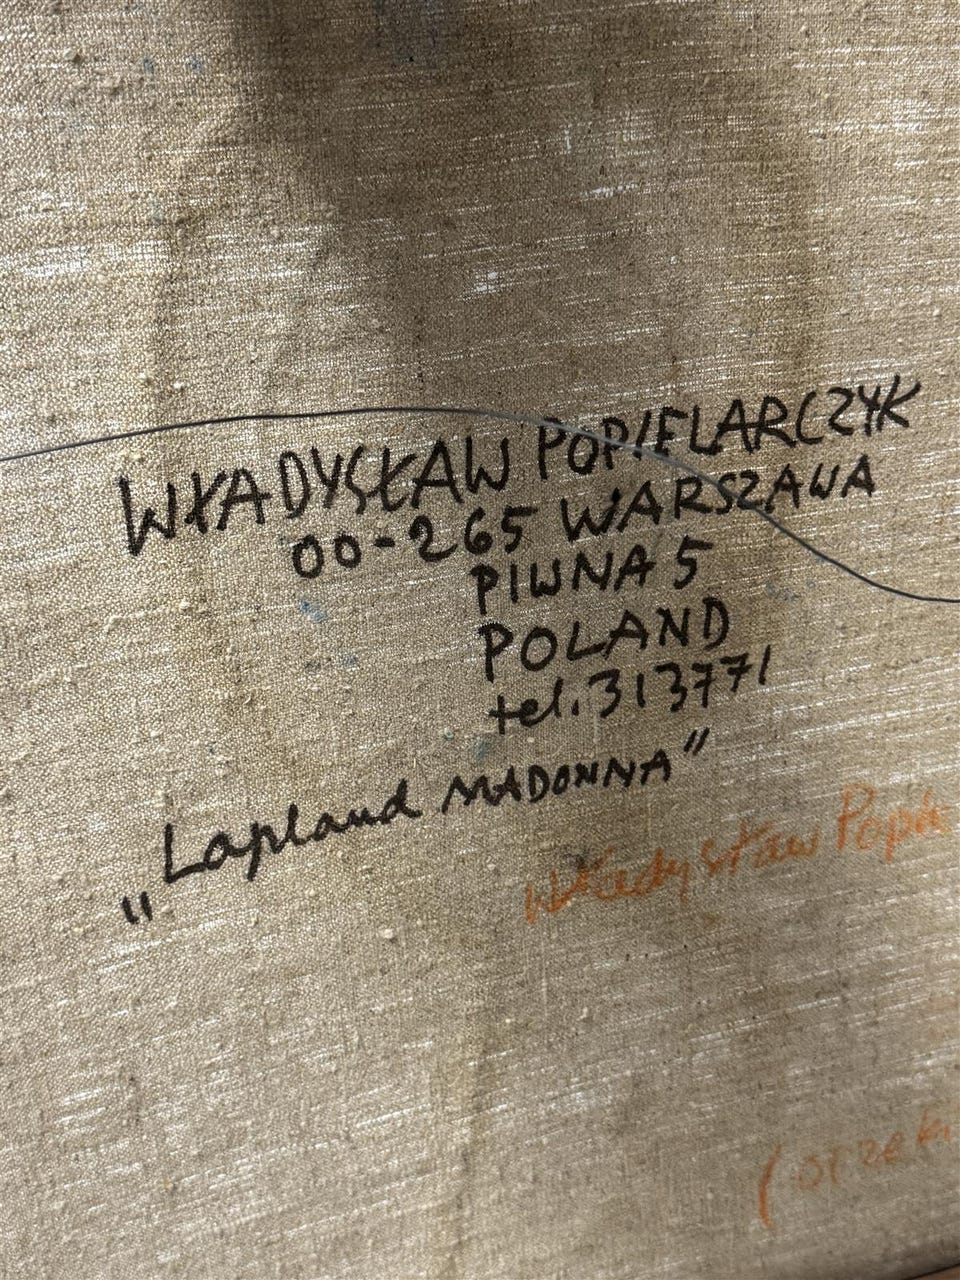 WŁADYSŁAW POPIELARCZYK
00-265 WARSZAWA
PIWNA 5
POLAND
tel. 313771
„Lapland MADONNA"
Władysław